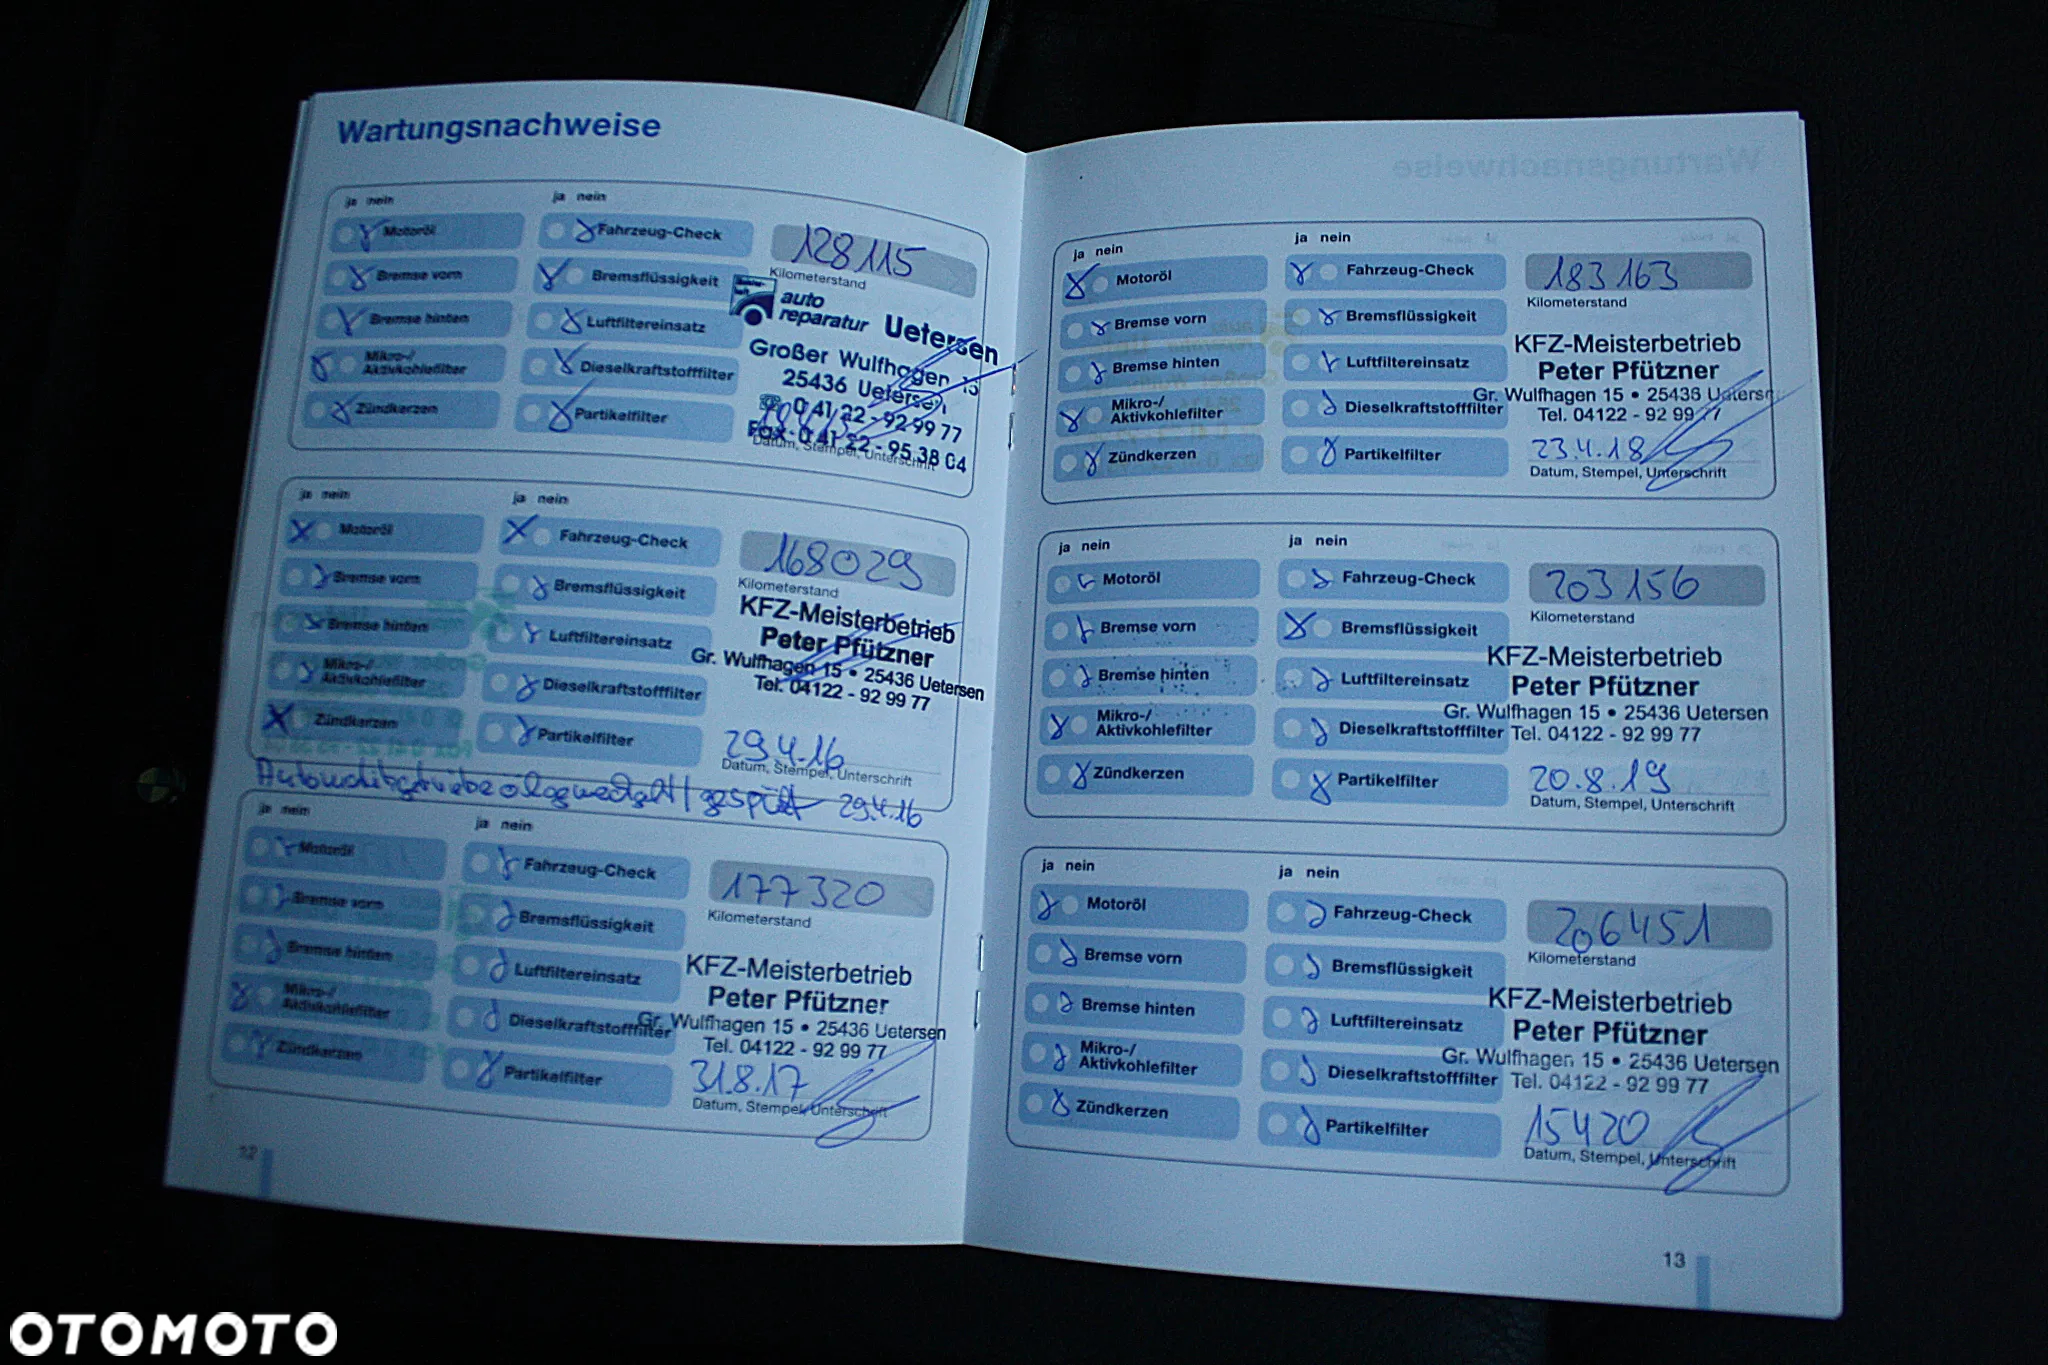 Wartungsnachweise
ja nein
ja nein
Motoröl
Fahrzeug-Check
128115
Bremse vorn
Bremsflüssigkeit
Kilometerstand
Bremse hinten
Luftfiltereinsatz
auto
reparatur Uetersen
Mikro-/
Aktivkohlefilter
Dieselkraftstofffilter
Großer Wulfhagen 15
25436 Uetersen
Zündkerzen
Partikelfilter
☎ 0 41 22 - 92 99 77
Fax 0 41 22 - 95 38 04
Datum, Stempel, Unterschrift
ja nein
ja nein
Motoröl
Fahrzeug-Check
168029
Bremse vorn
Bremsflüssigkeit
Kilometerstand
Bremse hinten
Luftfiltereinsatz
KFZ-Meisterbetrieb
Peter Pfützner
Mikro-/
Aktivkohlefilter
Dieselkraftstofffilter
Gr. Wulfhagen 15 • 25436 Uetersen
Tel. 04122 - 92 99 77
Zündkerzen
Partikelfilter
29.4.16
Datum, Stempel, Unterschrift
Automatikgetriebe gespült 29.4.16
ja nein
ja nein
Motoröl
Fahrzeug-Check
177320
Bremse vorn
Bremsflüssigkeit
Kilometerstand
Bremse hinten
Luftfiltereinsatz
KFZ-Meisterbetrieb
Peter Pfützner
Mikro-/
Aktivkohlefilter
Dieselkraftstofffilter
Gr. Wulfhagen 15 • 25436 Uetersen
Tel. 04122 - 92 99 77
Zündkerzen
Partikelfilter
31.8.17
Datum, Stempel, Unterschrift
12
ja nein
ja nein
Motoröl
Fahrzeug-Check
183163
Kilometerstand
Bremse vorn
Bremsflüssigkeit
KFZ-Meisterbetrieb
Bremse hinten
Luftfiltereinsatz
Peter Pfützner
Mikro-/
Aktivkohlefilter
Dieselkraftstofffilter
Gr. Wulfhagen 15 • 25436 Uetersen
Tel. 04122 - 92 99 77
Zündkerzen
Partikelfilter
23.4.18
Datum, Stempel, Unterschrift
ja nein
ja nein
Motoröl
Fahrzeug-Check
203156
Kilometerstand
Bremse vorn
Bremsflüssigkeit
KFZ-Meisterbetrieb
Bremse hinten
Luftfiltereinsatz
Peter Pfützner
Mikro-/
Aktivkohlefilter
Dieselkraftstofffilter
Gr. Wulfhagen 15 • 25436 Uetersen
Tel. 04122 - 92 99 77
Zündkerzen
Partikelfilter
20.8.19
Datum, Stempel, Unterschrift
ja nein
ja nein
Motoröl
Fahrzeug-Check
206451
Kilometerstand
Bremse vorn
Bremsflüssigkeit
KFZ-Meisterbetrieb
Bremse hinten
Luftfiltereinsatz
Peter Pfützner
Mikro-/
Aktivkohlefilter
Dieselkraftstofffilter
Gr. Wulfhagen 15 • 25436 Uetersen
Tel. 04122 - 92 99 77
Zündkerzen
Partikelfilter
15420
Datum, Stempel, Unterschrift
13
OTOMOTO